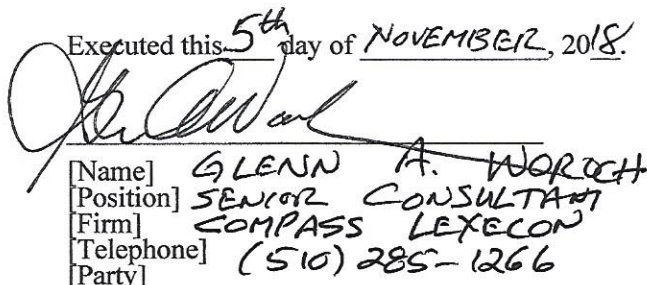 Executed this 5th day of NOVEMBER, 2018.
[Name] GLENN A. WOROCH
[Position] SENIOR CONSULTANT
[Firm] COMPASS LEXECON
[Telephone] (510) 285-1266
[Party]